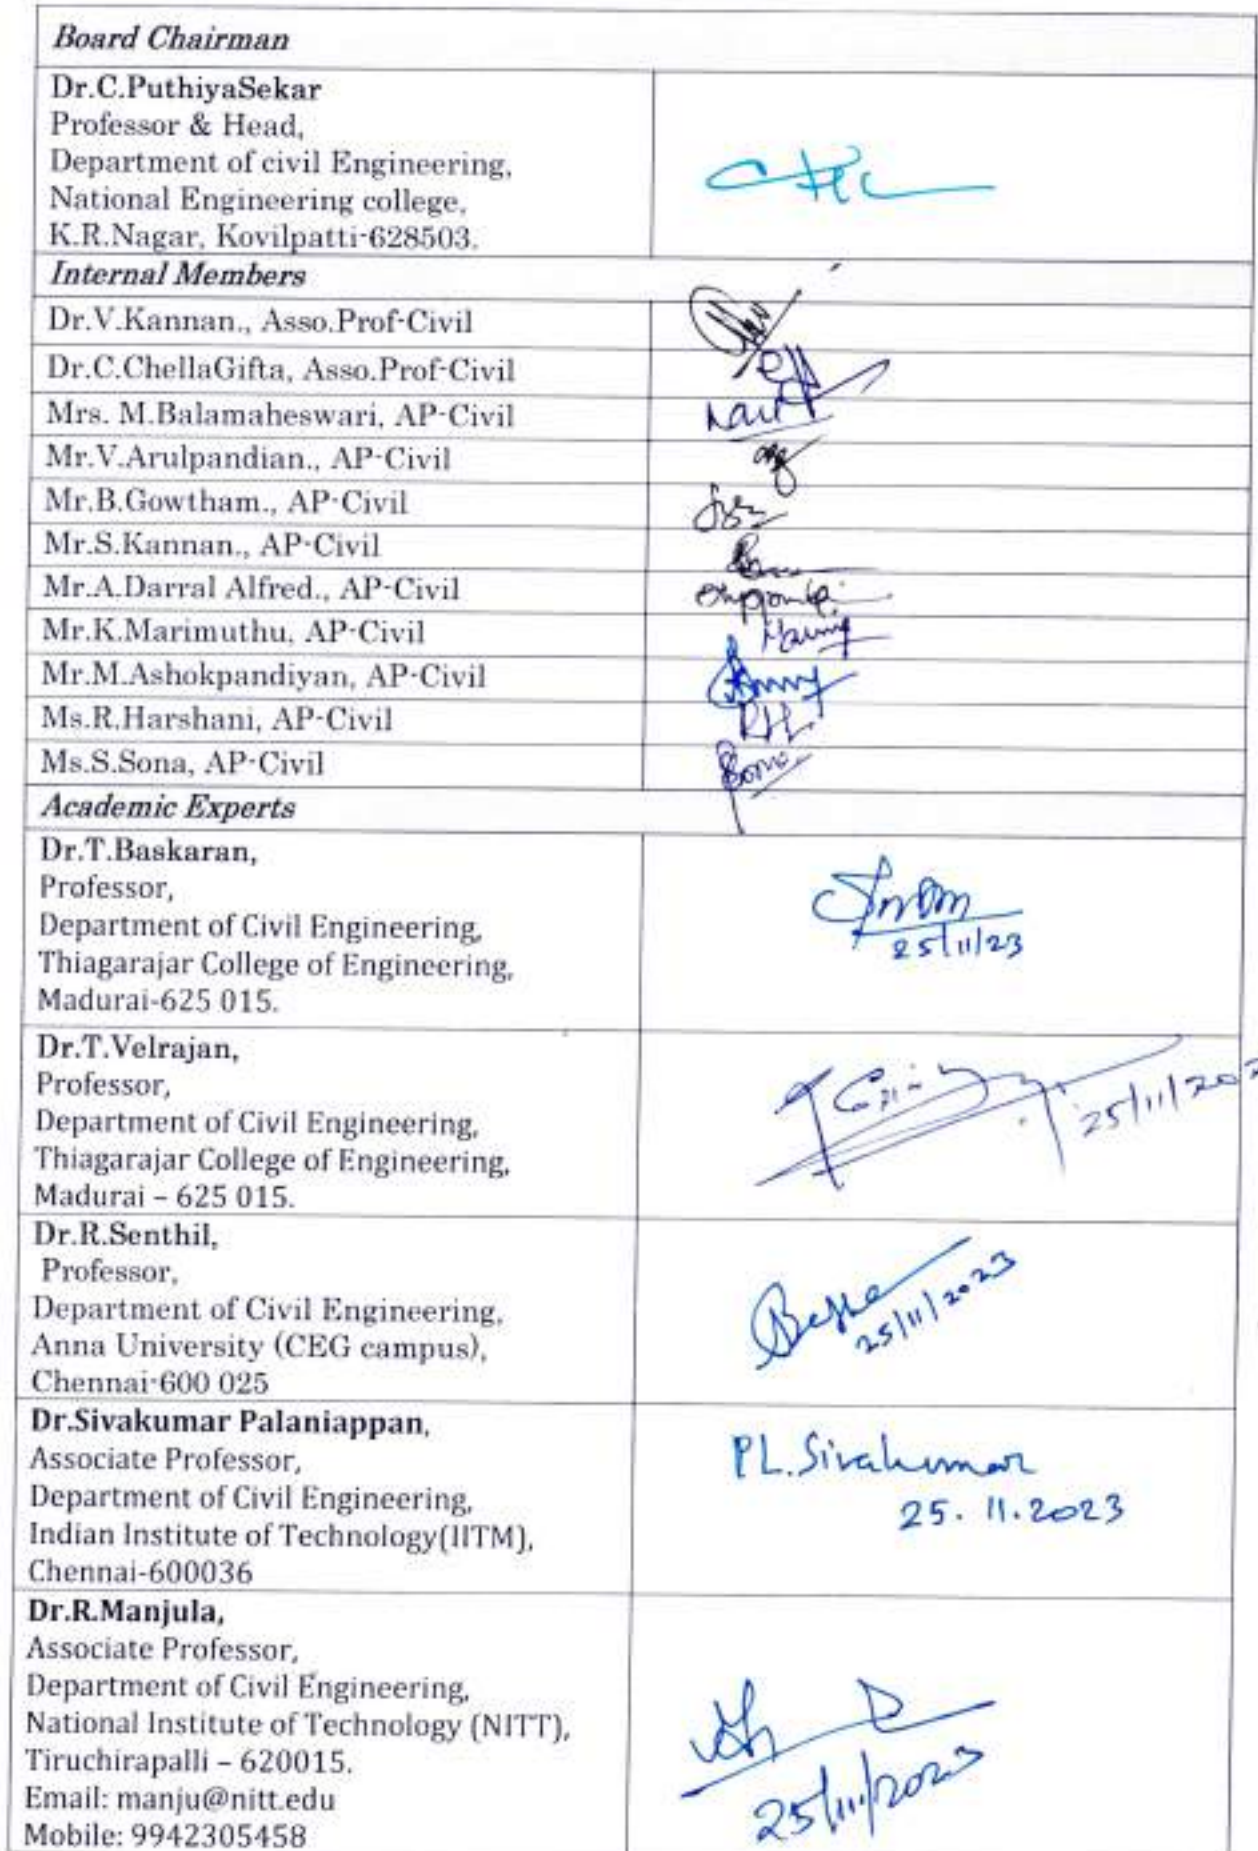 Board Chairman
Dr.C.PuthiyaSekar
Professor & Head,
Department of civil Engineering,
National Engineering college,
K.R.Nagar, Kovilpatti-628503.
Internal Members
Dr.V.Kannan., Asso.Prof-Civil
Dr.C.ChellaGifta, Asso.Prof-Civil
Mrs. M.Balamaheswari, AP-Civil
Mr.V.Arulpandian., AP-Civil
Mr.B.Gowtham., AP-Civil
Mr.S.Kannan., AP-Civil
Mr.A.Darral Alfred., AP-Civil
Mr.K.Marimuthu, AP-Civil
Mr.M.Ashokpandiyan, AP-Civil
Ms.R.Harshani, AP-Civil
Ms.S.Sona, AP-Civil
Academic Experts
Dr.T.Baskaran,
Professor,
Department of Civil Engineering,
Thiagarajar College of Engineering,
Madurai-625 015.
25/11/23
Dr.T.Velrajan,
Professor,
Department of Civil Engineering,
Thiagarajar College of Engineering,
Madurai – 625 015.
25/11/202
Dr.R.Senthil,
Professor,
Department of Civil Engineering,
Anna University (CEG campus),
Chennai-600 025
25/11/2023
Dr.Sivakumar Palaniappan,
Associate Professor,
Department of Civil Engineering,
Indian Institute of Technology(IITM),
Chennai-600036
PL.Sivakumar
25.11.2023
Dr.R.Manjula,
Associate Professor,
Department of Civil Engineering,
National Institute of Technology (NITT),
Tiruchirapalli – 620015.
Email: manju@nitt.edu
Mobile: 9942305458
25/11/2023